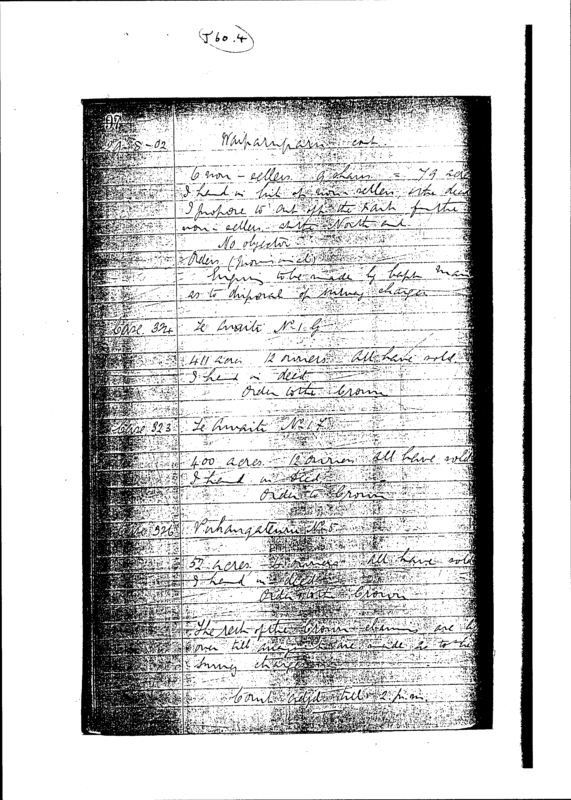 J60.4
97
-02 cont.
6 non-sellers 9 shares = 79 acre
I hand in list of non sellers & the deed
I propose to cut off the part for the
non-sellers at the North end.
No objector
Orders (provisional)
Inquiry to be made by Capt.
as to disposal of survey charges
Case 324 Te Awaite No 1.G
411 acres 12 owners all have sold
I hand in deed
Order to the Crown
Case 323 Te Awaite No 1 F
400 acres 12 owners all have sold
I hand in deed
Order to Crown
326 No 5
52 acres owners all have sold
I hand in deed
Order to the Crown
The rest of the Crown claims are
over till are made as to the
survey charges
Court adjd till 2 p.m.